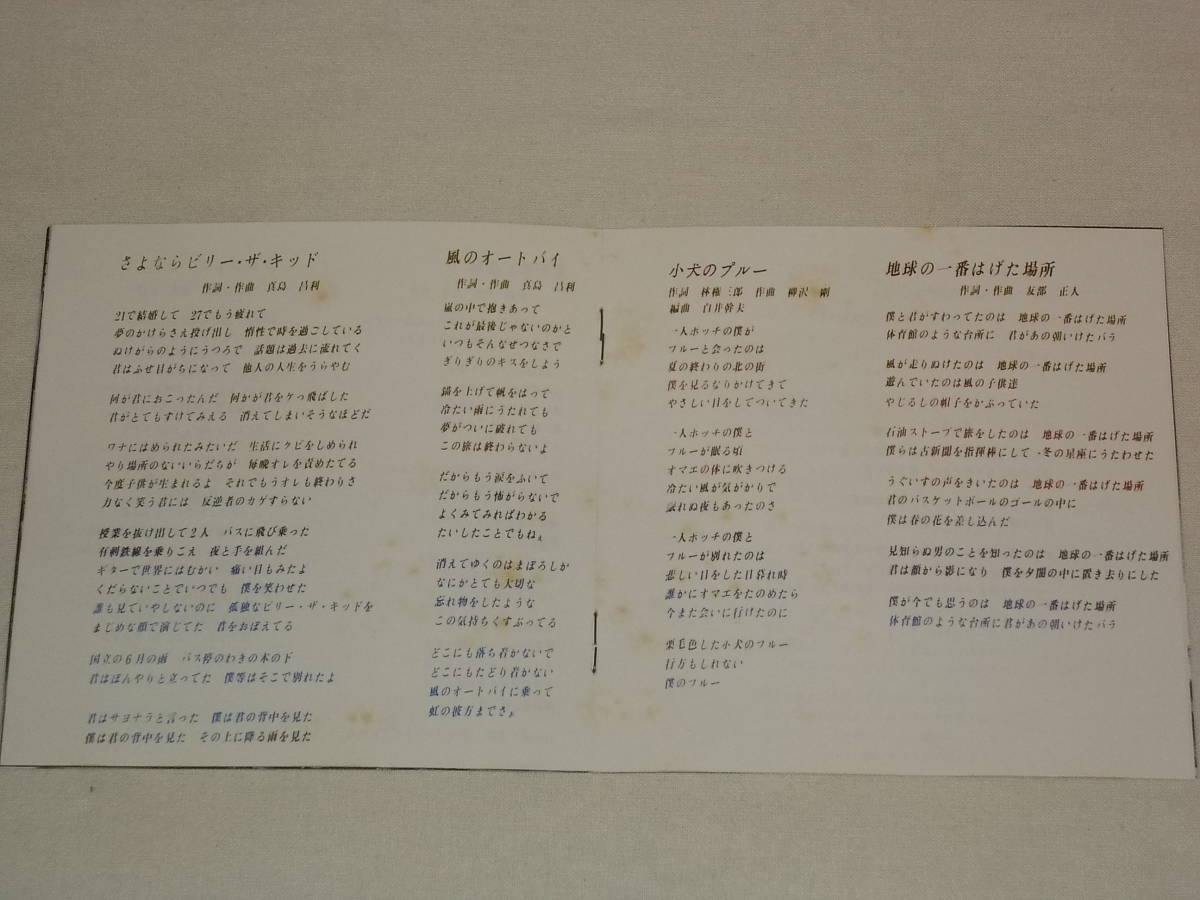 さよならビリー・ザ・キッド
作詞・作曲　真島　昌利
21で結婚して　27でもう疲れて
夢のかけらさえ投げ出し　惰性で時を過ごしている
ぬけがらのようにうつろで　話題は過去に流れてく
君はふせ目がちになって　他人の人生をうらやむ
何が君におこったんだ　何かが君をケっ飛ばした
君がとてもすけてみえる　消えてしまいそうなほどだ
ワナにはめられたみたいだ　生活にクビをしめられ
やり場所のないいらだちが　毎晩オレを責めたてる
今度子供が生まれるよ　それでもうオレも終わりさ
力なく笑う君には　反逆者のカゲすらない
授業を抜け出して2人　バスに飛び乗った
有刺鉄線を乗りこえ　夜と手を組んだ
ギターで世界にはむかい　痛い目もみたよ
くだらないことでいつでも　僕を笑わせた
誰も見ていやしないのに　孤独なビリー・ザ・キッドを
まじめな顔で演じてた　君をおぼえてる
国立の6月の雨　バス停のわきの木の下
君はぼんやりと立ってた　僕等はそこで別れたよ
君はサヨナラと言った　僕は君の背中を見た
僕は君の背中を見た　その上に降る雨を見た
風のオートバイ
作詞・作曲　真島　昌利
嵐の中で抱きあって
これが最後じゃないのかと
いつもそんなせつなさで
ぎりぎりのキスをしよう
錨を上げて帆をはって
冷たい雨にうたれても
夢がついに破れても
この旅は終わらないよ
だからもう涙をふいて
だからもう怖がらないで
よくみてみればわかる
たいしたことでもねぇ
消えてゆくのはまぼろしか
なにかとても大切な
忘れ物をしたような
この気持ちくすぶってる
どこにも落ち着かないで
どこにもたどり着かない
風のオートバイに乗って
虹の彼方までさぁ
小犬のプルー
作詞　林権三郎　作曲　柳沢　剛
編曲　白井幹夫
一人ボッチの僕が
プルーと会ったのは
夏の終わりの北の街
僕を見るなりかけてきて
やさしい目をしてついてきた
一人ボッチの僕と
プルーが眠る頃
オマエの体に吹きつける
冷たい風が気がかりで
寝れぬ夜もあったのさ
一人ボッチの僕と
プルーが別れたのは
悲しい目をした日暮れ時
誰かにオマエをたのめたら
今また会いに行けたのに
栗毛色した小犬のプルー
行方もしれない
僕のプルー
地球の一番はげた場所
作詞・作曲　友部　正人
僕と君がすわってたのは　地球の一番はげた場所
体育館のような台所に　君があの朝いけたバラ
風が走りぬけたのは　地球の一番はげた場所
遊んでいたのは風の子供達
やじるしの帽子をかぶっていた
石油ストーブで旅をしたのは　地球の一番はげた場所
僕らは古新聞を指揮棒にして　冬の星座にうたわせた
うぐいすの声をきいたのは　地球の一番はげた場所
君のバスケットボールのゴールの中に
僕は春の花を差し込んだ
見知らぬ男のことを知ったのは　地球の一番はげた場所
君は顔から影になり　僕を夕闇の中に置き去りにした
僕が今でも思うのは　地球の一番はげた場所
体育館のような台所に君があの朝いけたバラ